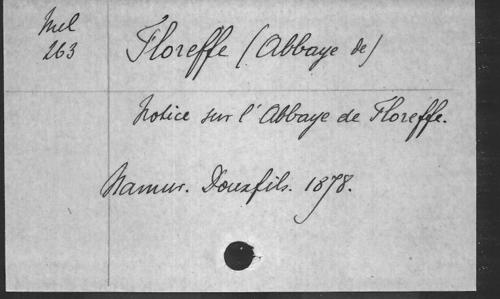 Mel
263
Floreffe (Abbaye de)
Notice sur l'Abbaye de Floreffe.
Namur. Douxfils. 1878.